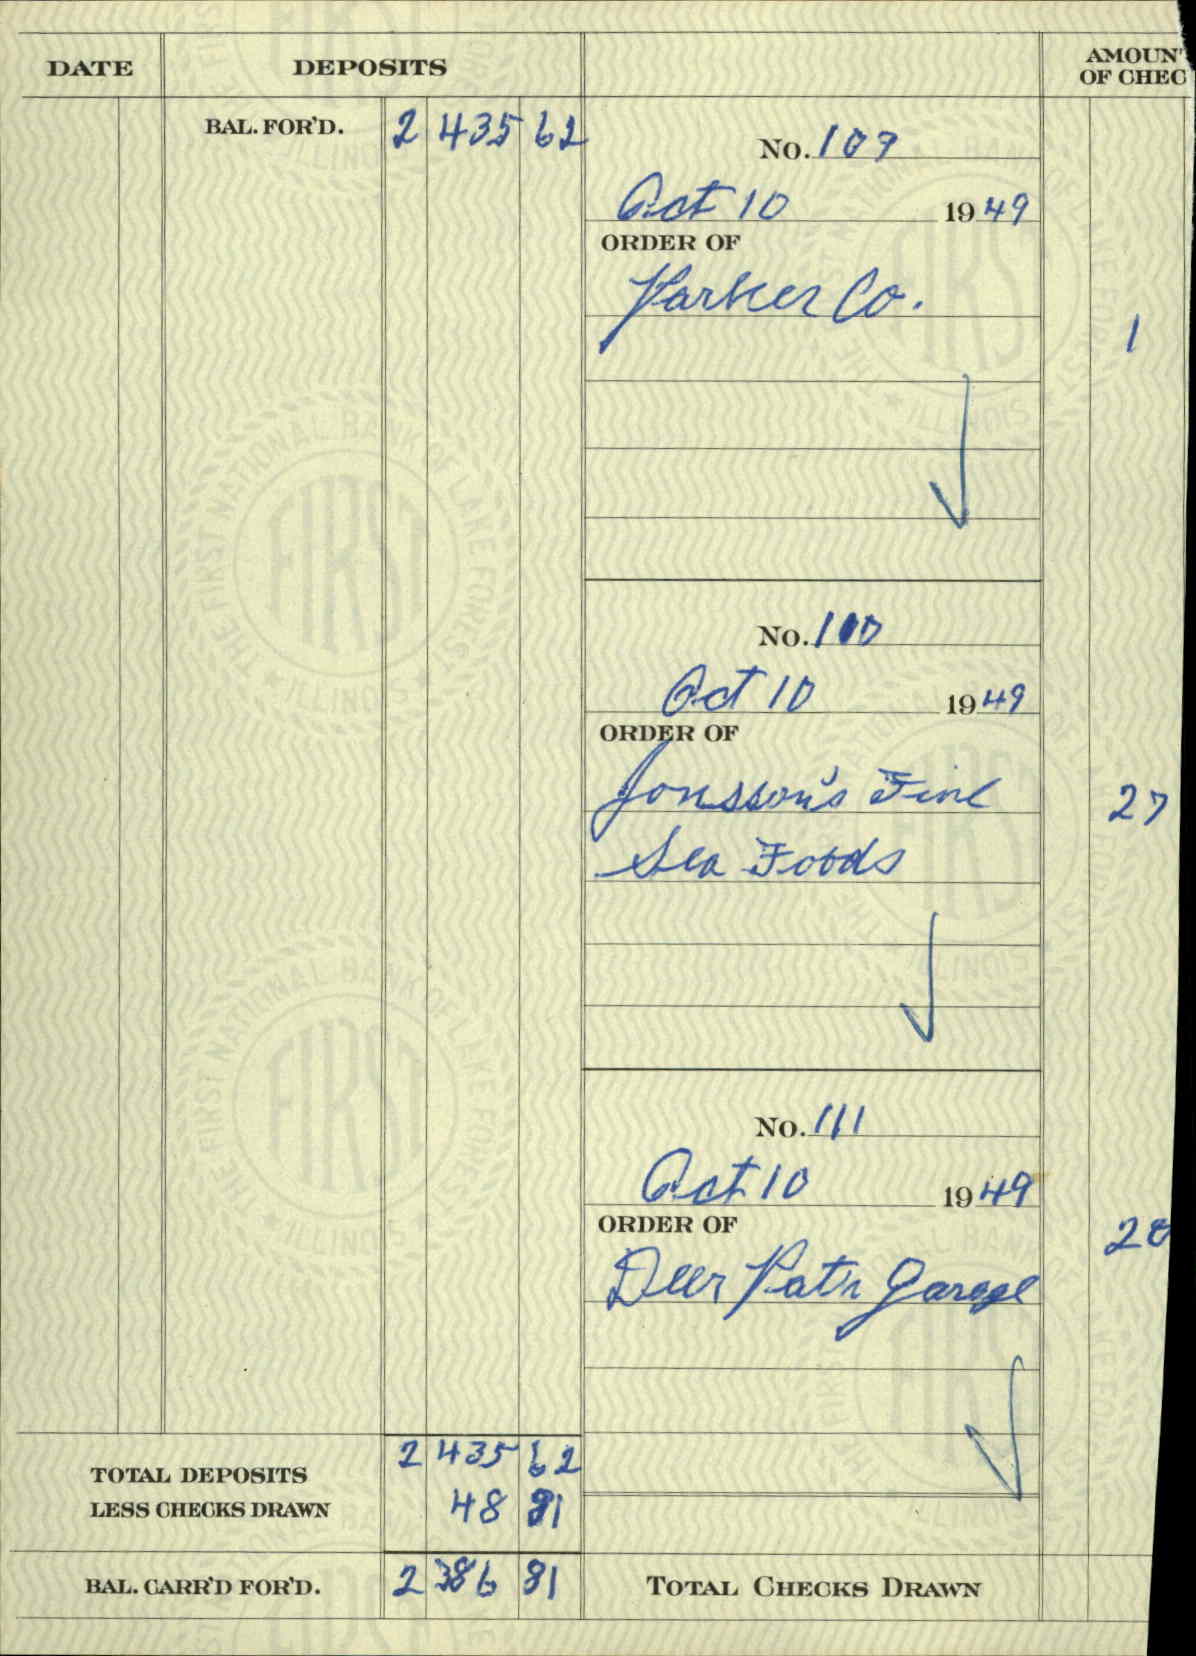 DATE DEPOSITS AMOUN
OF CHEC
BAL. FOR'D. 2 435 62
No. 109
Oct 10 1949
ORDER OF
Parker Co.
1
No. 110
Oct 10 1949
ORDER OF
Jonsson's Fine
27
Sea Foods
No. 111
Oct 10 1949
ORDER OF
20
Deer Path Garage
TOTAL DEPOSITS 2 435 62
LESS CHECKS DRAWN 48 81
BAL. CARR'D FOR'D. 2 386 81
TOTAL CHECKS DRAWN
THE FIRST NATIONAL BANK OF LAKE FOREST
FIRST
ILLINOIS